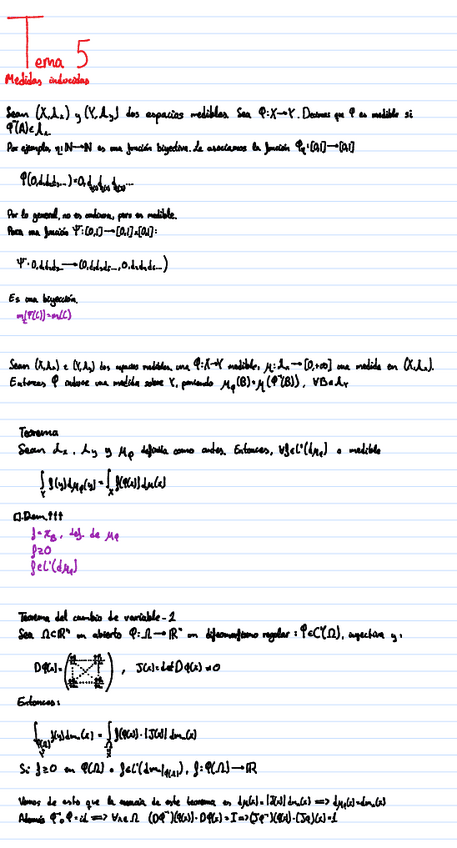 Tema 5
Medidas inducidas
Sean (X,λₓ) y (Y,λ_y) dos espacios medibles. Sea φ:X→Y. Decimos que φ es medible si
φ⁻¹(A)∈λₓ
Por ejemplo, η:N→N es una función biyectiva. Le asociamos la función φ_η:[0,1]→[0,1]
Por lo general, no es continua, pero es medible.
Para una función Ψ:[0,1]→[0,1]×[0,1]:
Es una biyección.
Sean (X,λₓ) e (Y,λ_y) dos espacios medibles, una φ:X→Y medible, μ:λₓ→[0,+∞] una medida en (X,λₓ).
Entonces φ induce una medida sobre Y, poniendo μ_φ(B)=μ(φ⁻¹(B)), ∀B∈λ_Y
Teorema
Sean λₓ, λ_y y μ_φ definida como antes. Entonces, ∀f∈L¹(dμ_φ) o medible
∫_Y f(y)dμ_φ(y)=∫_X f(φ(x))dμ(x)
Dem.
f=χ_B, def. de μ_φ
f≥0
f∈L¹(dμ_φ)
Teorema del cambio de variable-1
Sea Ω⊂ℝⁿ un abierto φ:Ω→ℝⁿ un difeomorfismo regular: φ∈C¹(Ω), inyectiva y:
Dφ(x)= , J(x)=det Dφ(x)≠0
Entonces:
∫_φ(Ω) f(y)dm_n(x)=∫_Ω f(φ(x))·|J(x)|dm_n(x)
Si f≥0 en φ(Ω) o f∈L¹(dm_n|φ(Ω)), f:φ(Ω)→ℝ
Vemos de esto que la esencia de este teorema es dμ(x)=|J(x)|dm_n(x) ⟹ dμ_φ(x)=dm_n(x)
Además φ⁻¹∘φ=id ⟹ ∀x∈Ω (Dφ⁻¹)(φ(x))·Dφ(x)=I ⟹ (Jφ⁻¹)(φ(x))·(Jφ)(x)=1